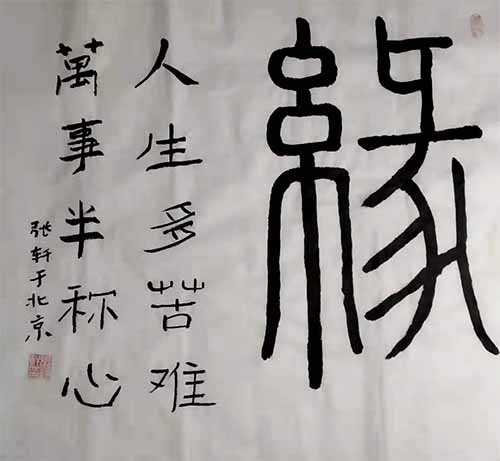 緣
人生多苦难
萬事半称心
张轩于北京